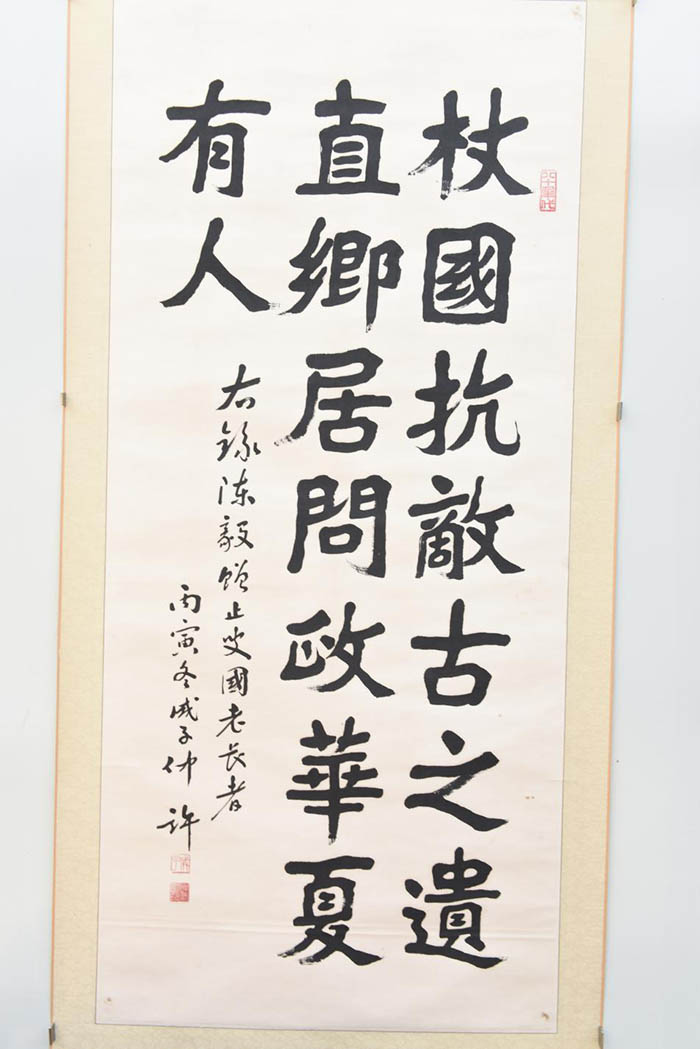 杖國抗敵古之遺
直鄉居問政華夏
有人
右錄陳毅贈止叟國老長者
丙寅冬戚子仲 許